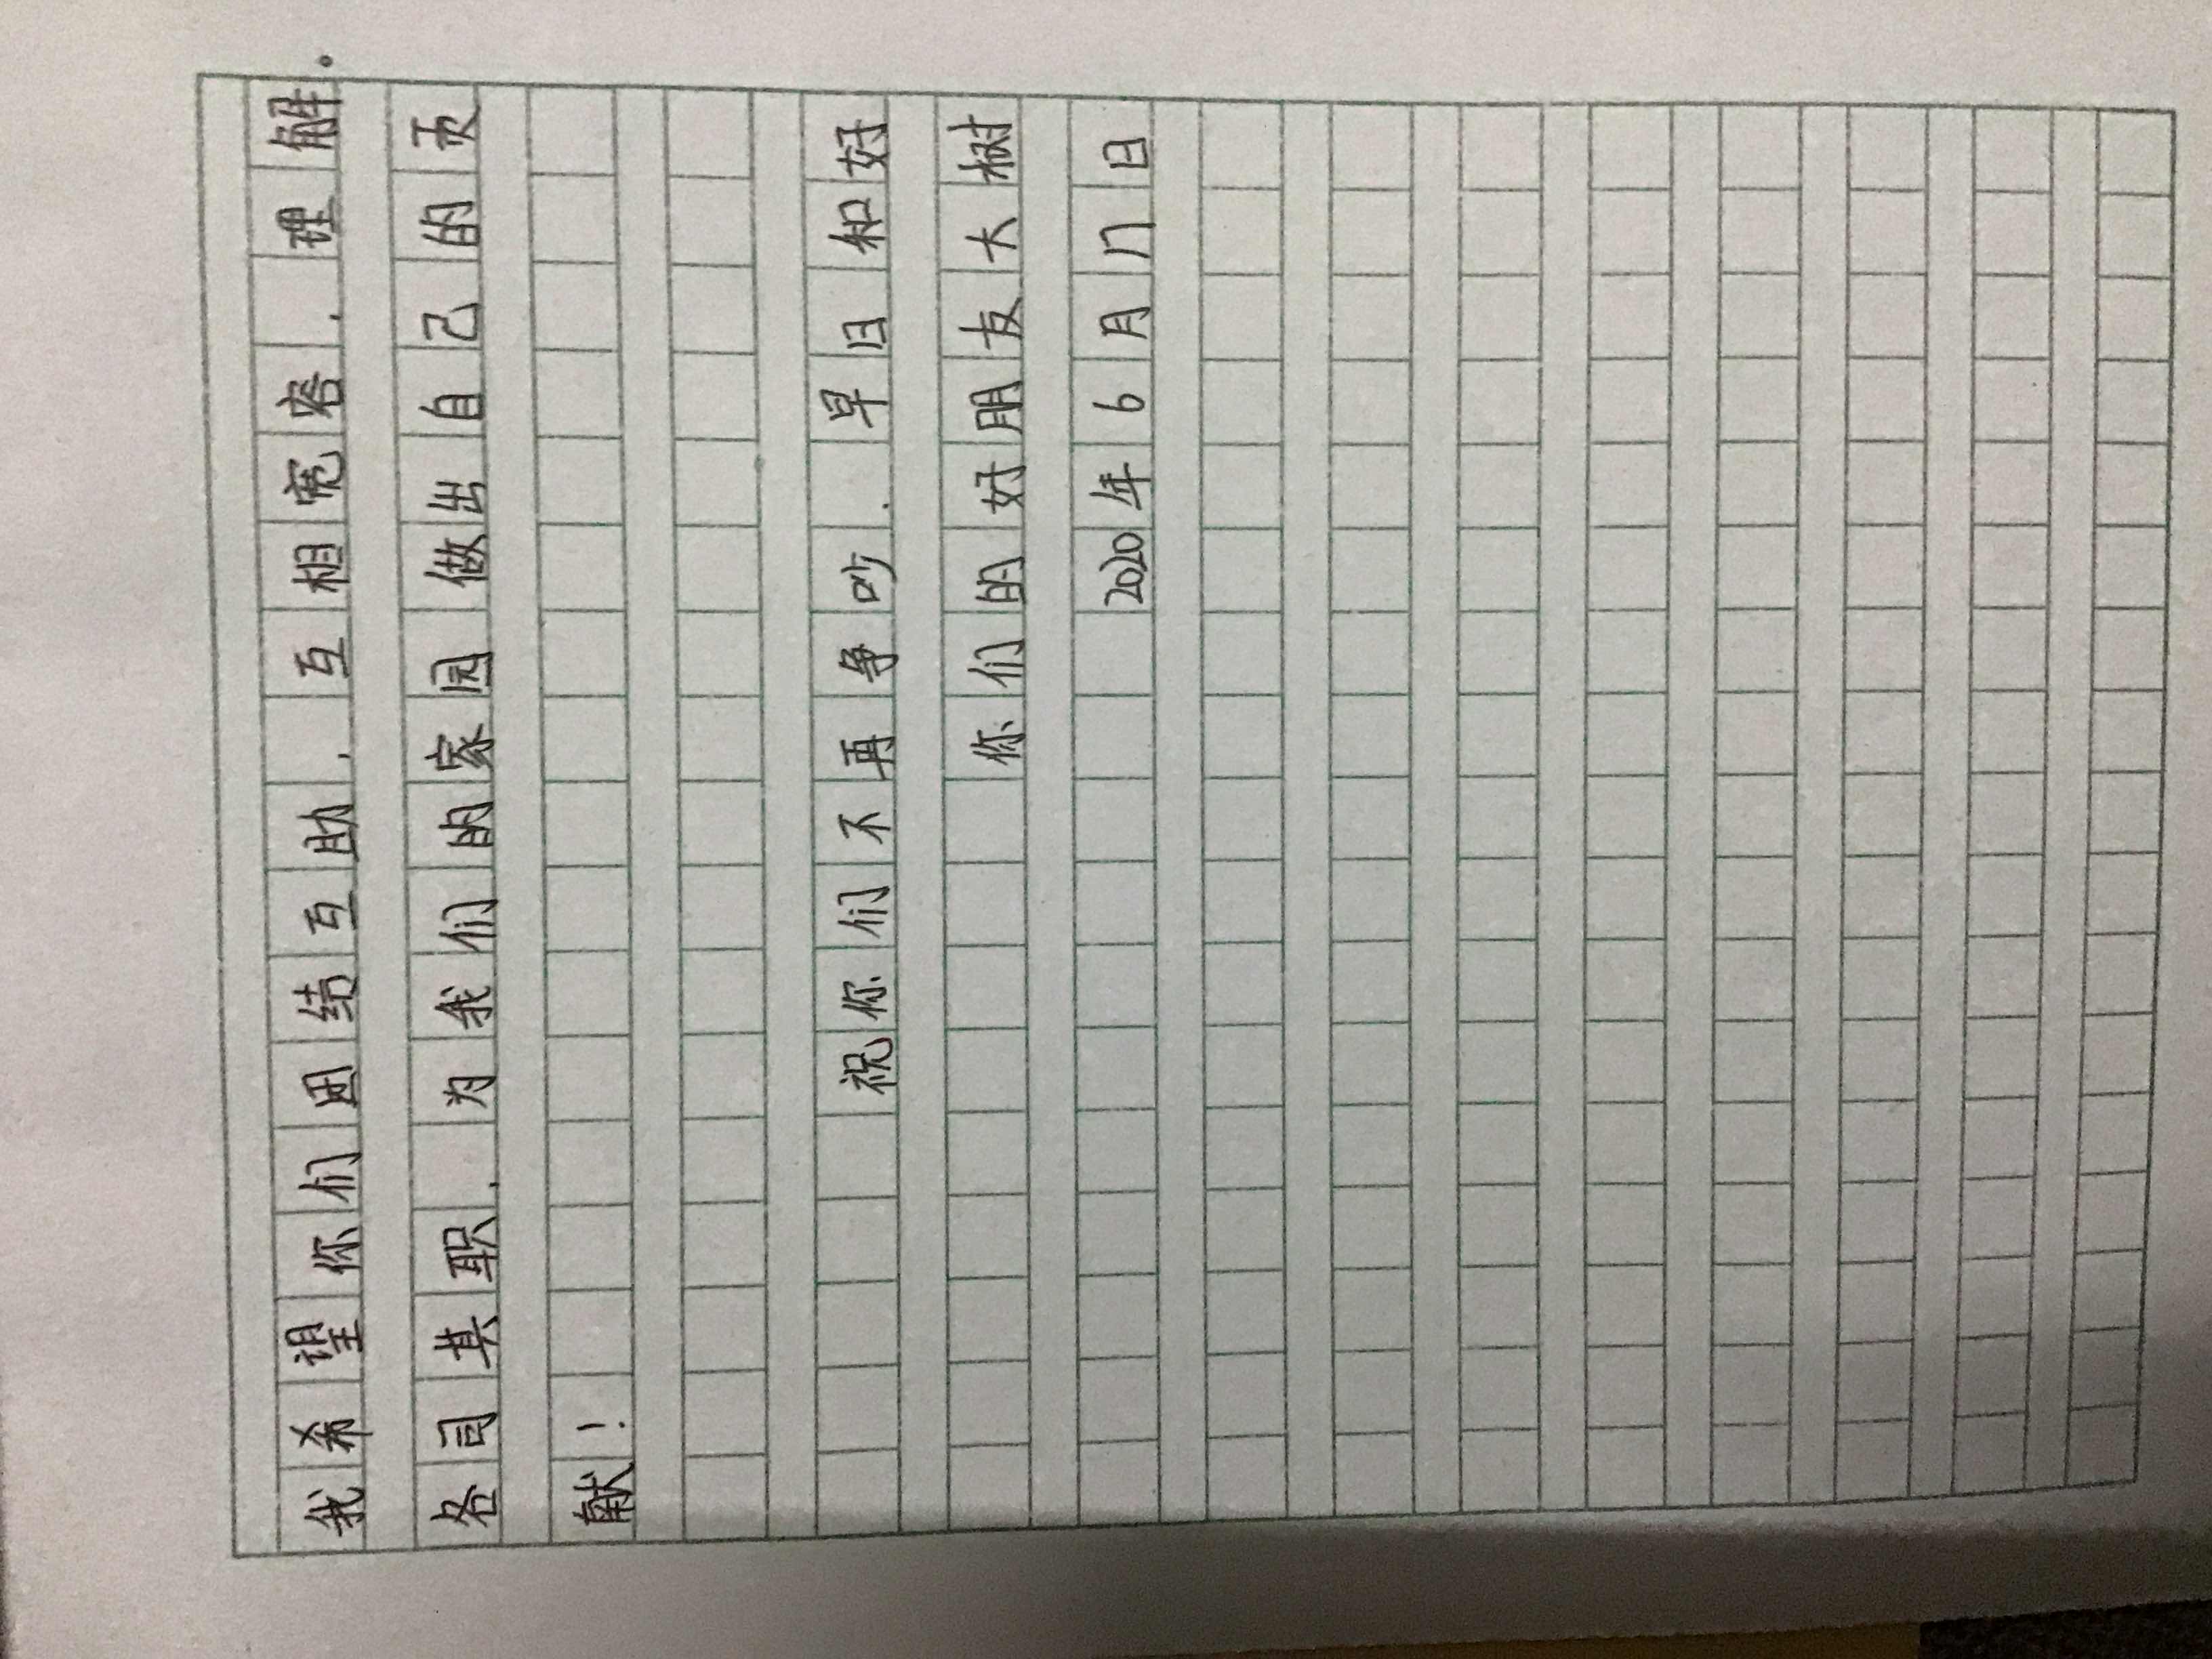 我希望你们团结互助，互相宽容，理解。
各司其职，为我们的家园做出自己的贡
献！
祝你们不再争吵，早日和好
你们的好朋友大树
2020年6月17日